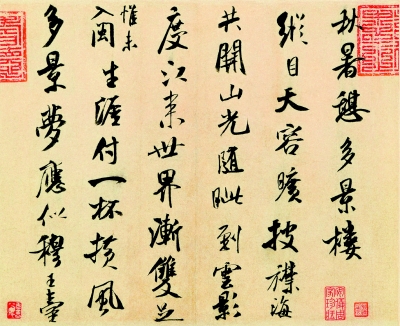 秋暑憩多景樓
縱目天容曠披襟海
共開山光隨眦到雲影
度江來世界漸雙足
惟未
閱生涯付一杯橫風
多景夢應似穆王臺